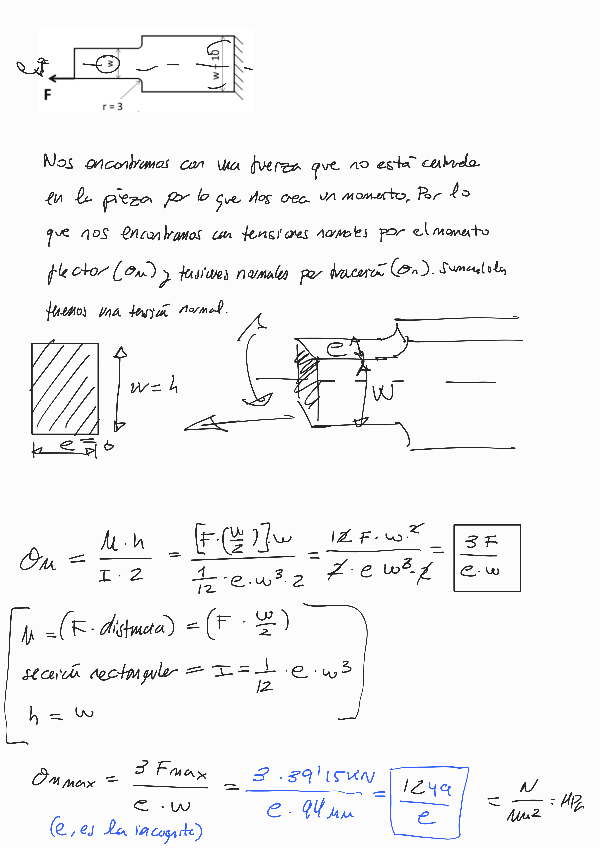 w
w - 10
F
r = 3
Nos encontramos con una fuerza que no está centrada
en la pieza por lo que nos crea un momento. Por lo
que nos encontramos con tensiones normales por el momento
flector (σM) y tensiones normales por tracción (σn). Sumandolas
tenemos una tensión normal.
e
w = h
w
e = b
σM = M·h / I·2 = [F·(w/2)]w / (1/12 · e·w³·2) = 12 F·w² / 2·e w³·2 = 3F / e·w
M = (F·distancia) = (F · w/2)
sección rectangular = I = 1/12 · e · w³
h = w
σM max = 3 Fmax / e · w = 3 · 39'15KN / e · 94 mm = 1249 / e = N / mm² = MPa
(e, es la incognita)